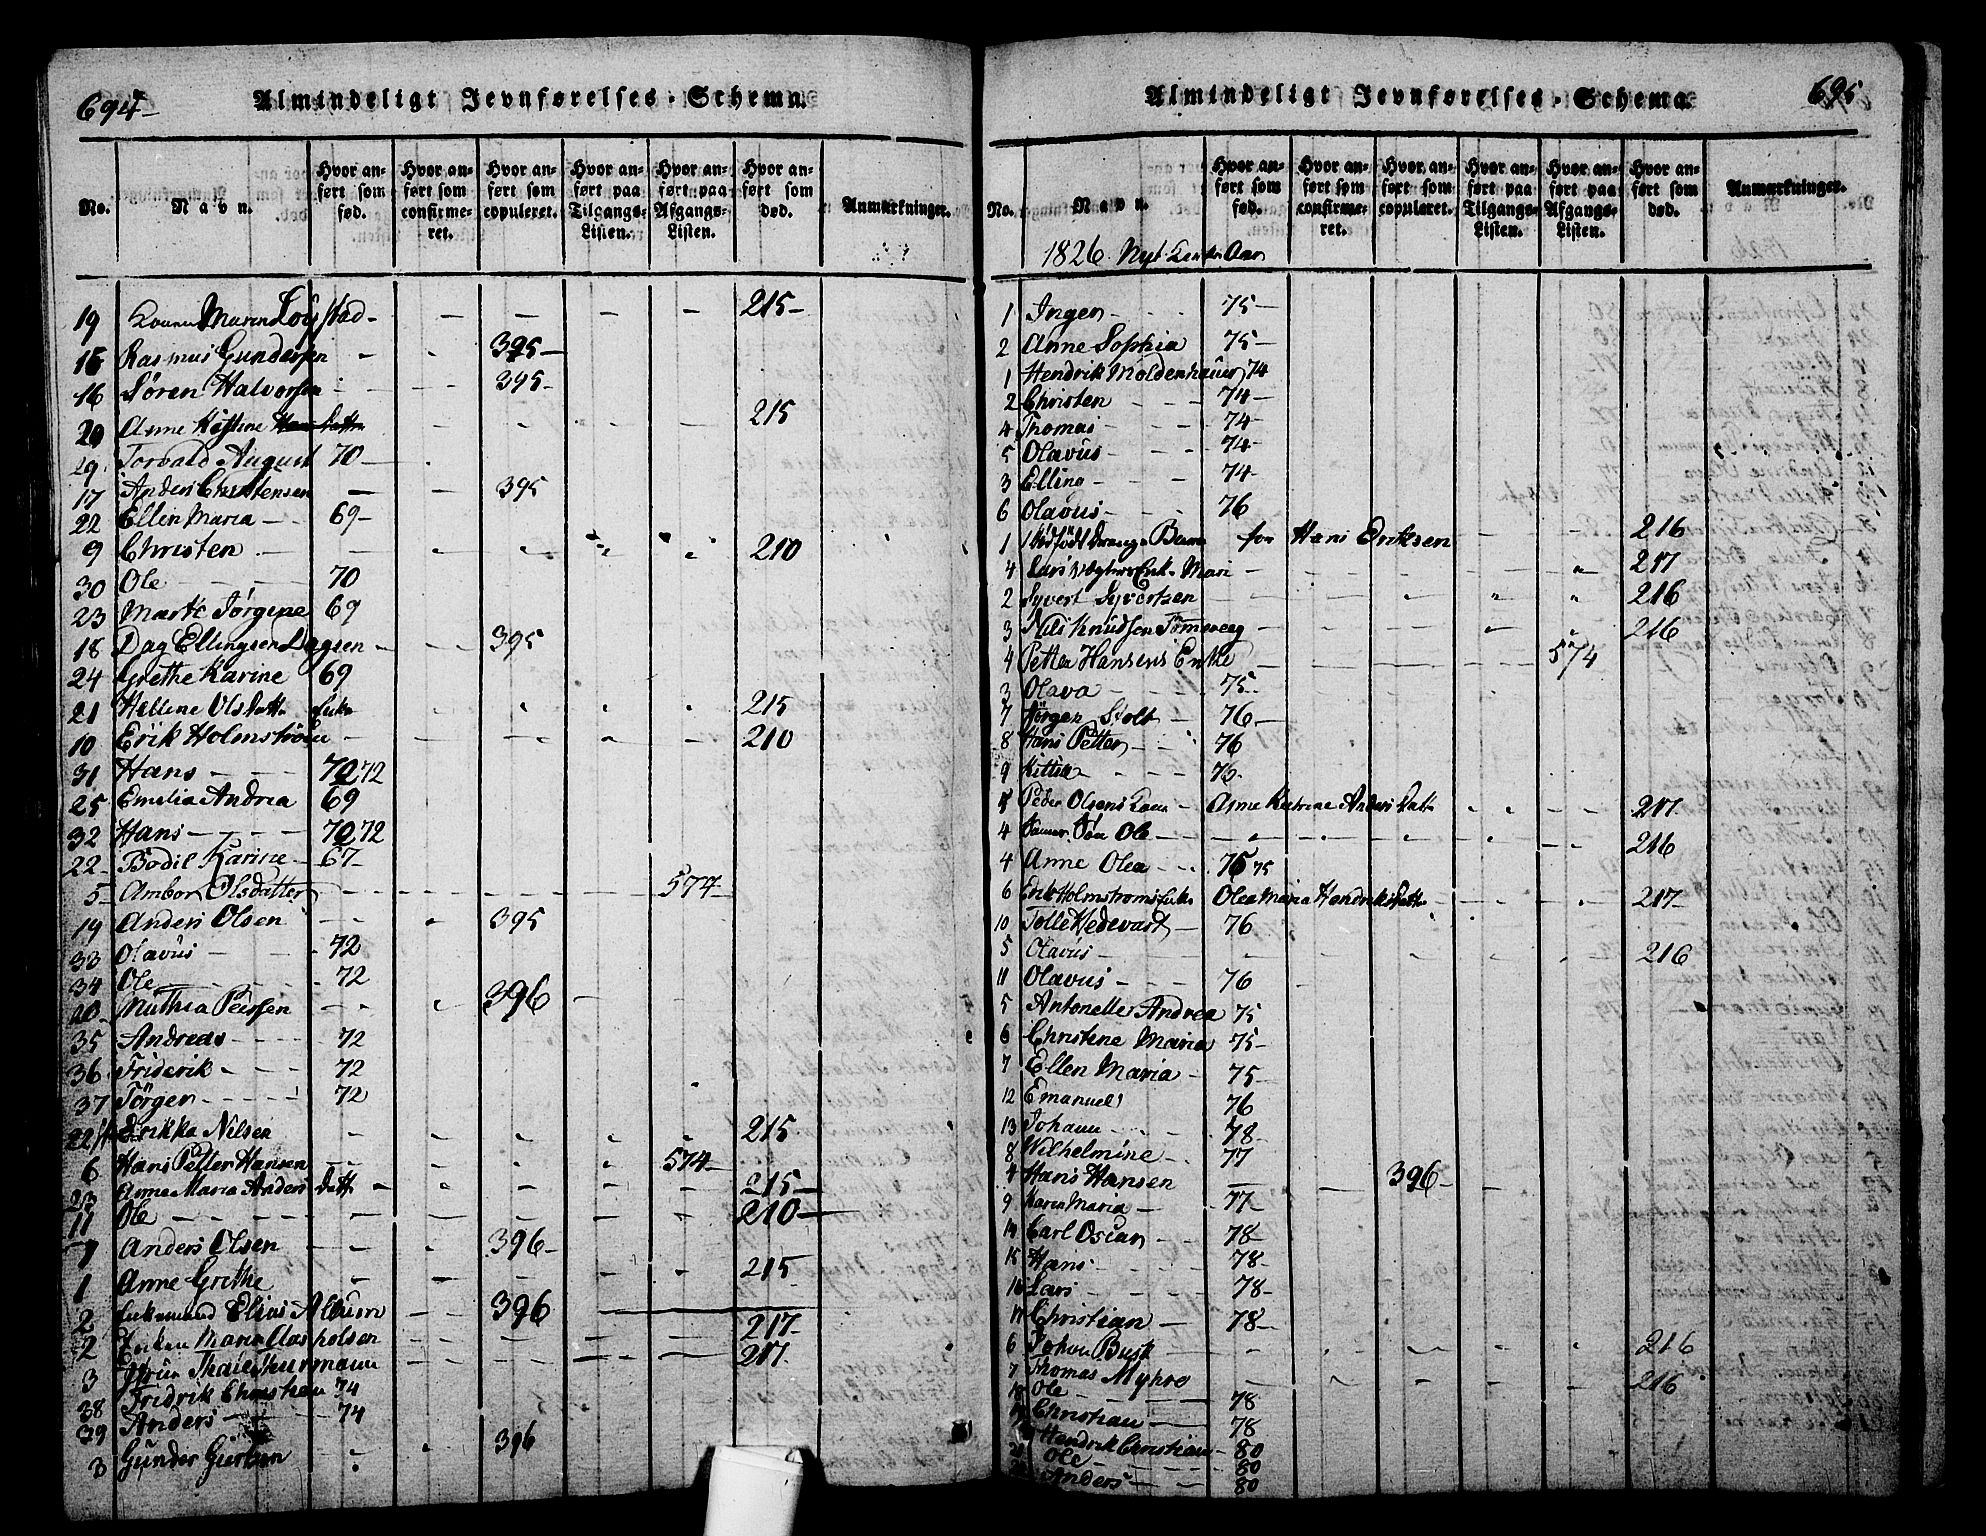 694
Almindeligt Jevnførelses-Schema.
No. Navn. Hvor anført som fød. Hvor anført som confirmeret. Hvor anført som copuleret. Hvor anført paa Tilgangs-Listen. Hvor anført paa Afgangs-Listen. Hvor anført som død. Anmærkninger.
19 Maren 215
15 Rasmus Gundersen 395
16 Søren Halvorsen 395
20 Anne 215
29 Torvald August 70
17 Anders Christensen 395
22 Ellen Maria 69
9 Christen 210
30 Ole 70
23 Marte Jörgine 69
18 Dag Ellingsen Dagsen 395
24 Grethe Karine 69
21 Hellene Olsdatt 215
10 Erik Holmström 210
31 Hans 72
25 Emelia Andrea 69
32 Hans 72
22 Bodil Karine 67
5 Ambor Olsdatter 574
19 Anders Olsen 395
33 Olavus 72
34 Ole 72
20 Mathia Peersen 396
35 Andreas 72
36 Friderik 72
37 Jörgen 72
22 Erikka Nilsen 215
6 Hans Petter Hansen 574
23 Anne Maria Anders Datt 215
11 Ole 210
1 Anders Olsen 396
1 Anne Grethe 215
2 Enkemand Elias Album 396
2 Maria 217
3 Thurmann 217
38 Fridrik Christian 74
39 Anders 74
3 Gunder 396
695
Almindeligt Jevnførelses-Schema.
No. Navn. Hvor anført som fød. Hvor anført som confirmeret. Hvor anført som copuleret. Hvor anført paa Tilgangs-Listen. Hvor anført paa Afgangs-Listen. Hvor anført som død. Anmærkninger.
1826. Nyt
1 Inger 75
2 Anne Sophia 75
1 Hendrik Moldenhauer 74
2 Christen 74
4 Thomas 74
5 Olavus 74
3 Elling 74
6 Olavus 76
1 Hans Eriksen 216
4 Lars Enk. Mari 217
2 Syvert Syvertsen 216
3 Nils Knudsen 216
4 Petter Hansens Enke 574
3 Olava 75
7 Jörgen Stolt 76
8 Hans Petter 76
9 Kittil 76
5 Peder Olsens Kone Anne Katrine Anders Datt 217
4 Ole 216
4 Anne Olea 75
6 Erik Holmströms Enke Olea Maria Hendriks Datt 217
10 Tolle Hedevart 76
5 Olavus 216
11 Olavus 76
5 Antonette Andrea 75
6 Christine Maria 75
7 Ellen Maria 75
12 Emanuel 76
13 Johann 78
8 Wilhelmine 77
4 Hans Hansen 396
9 Karen Maria 77
14 Carl Oscar 78
15 Hans 78
16 Lars 78
17 Christian 78
6 Johan Busk 216
7 Thomas Myhre 216
18 Ole 78
19 Christian 78
Hendrik Christian 80
Ole 80
Anders 80